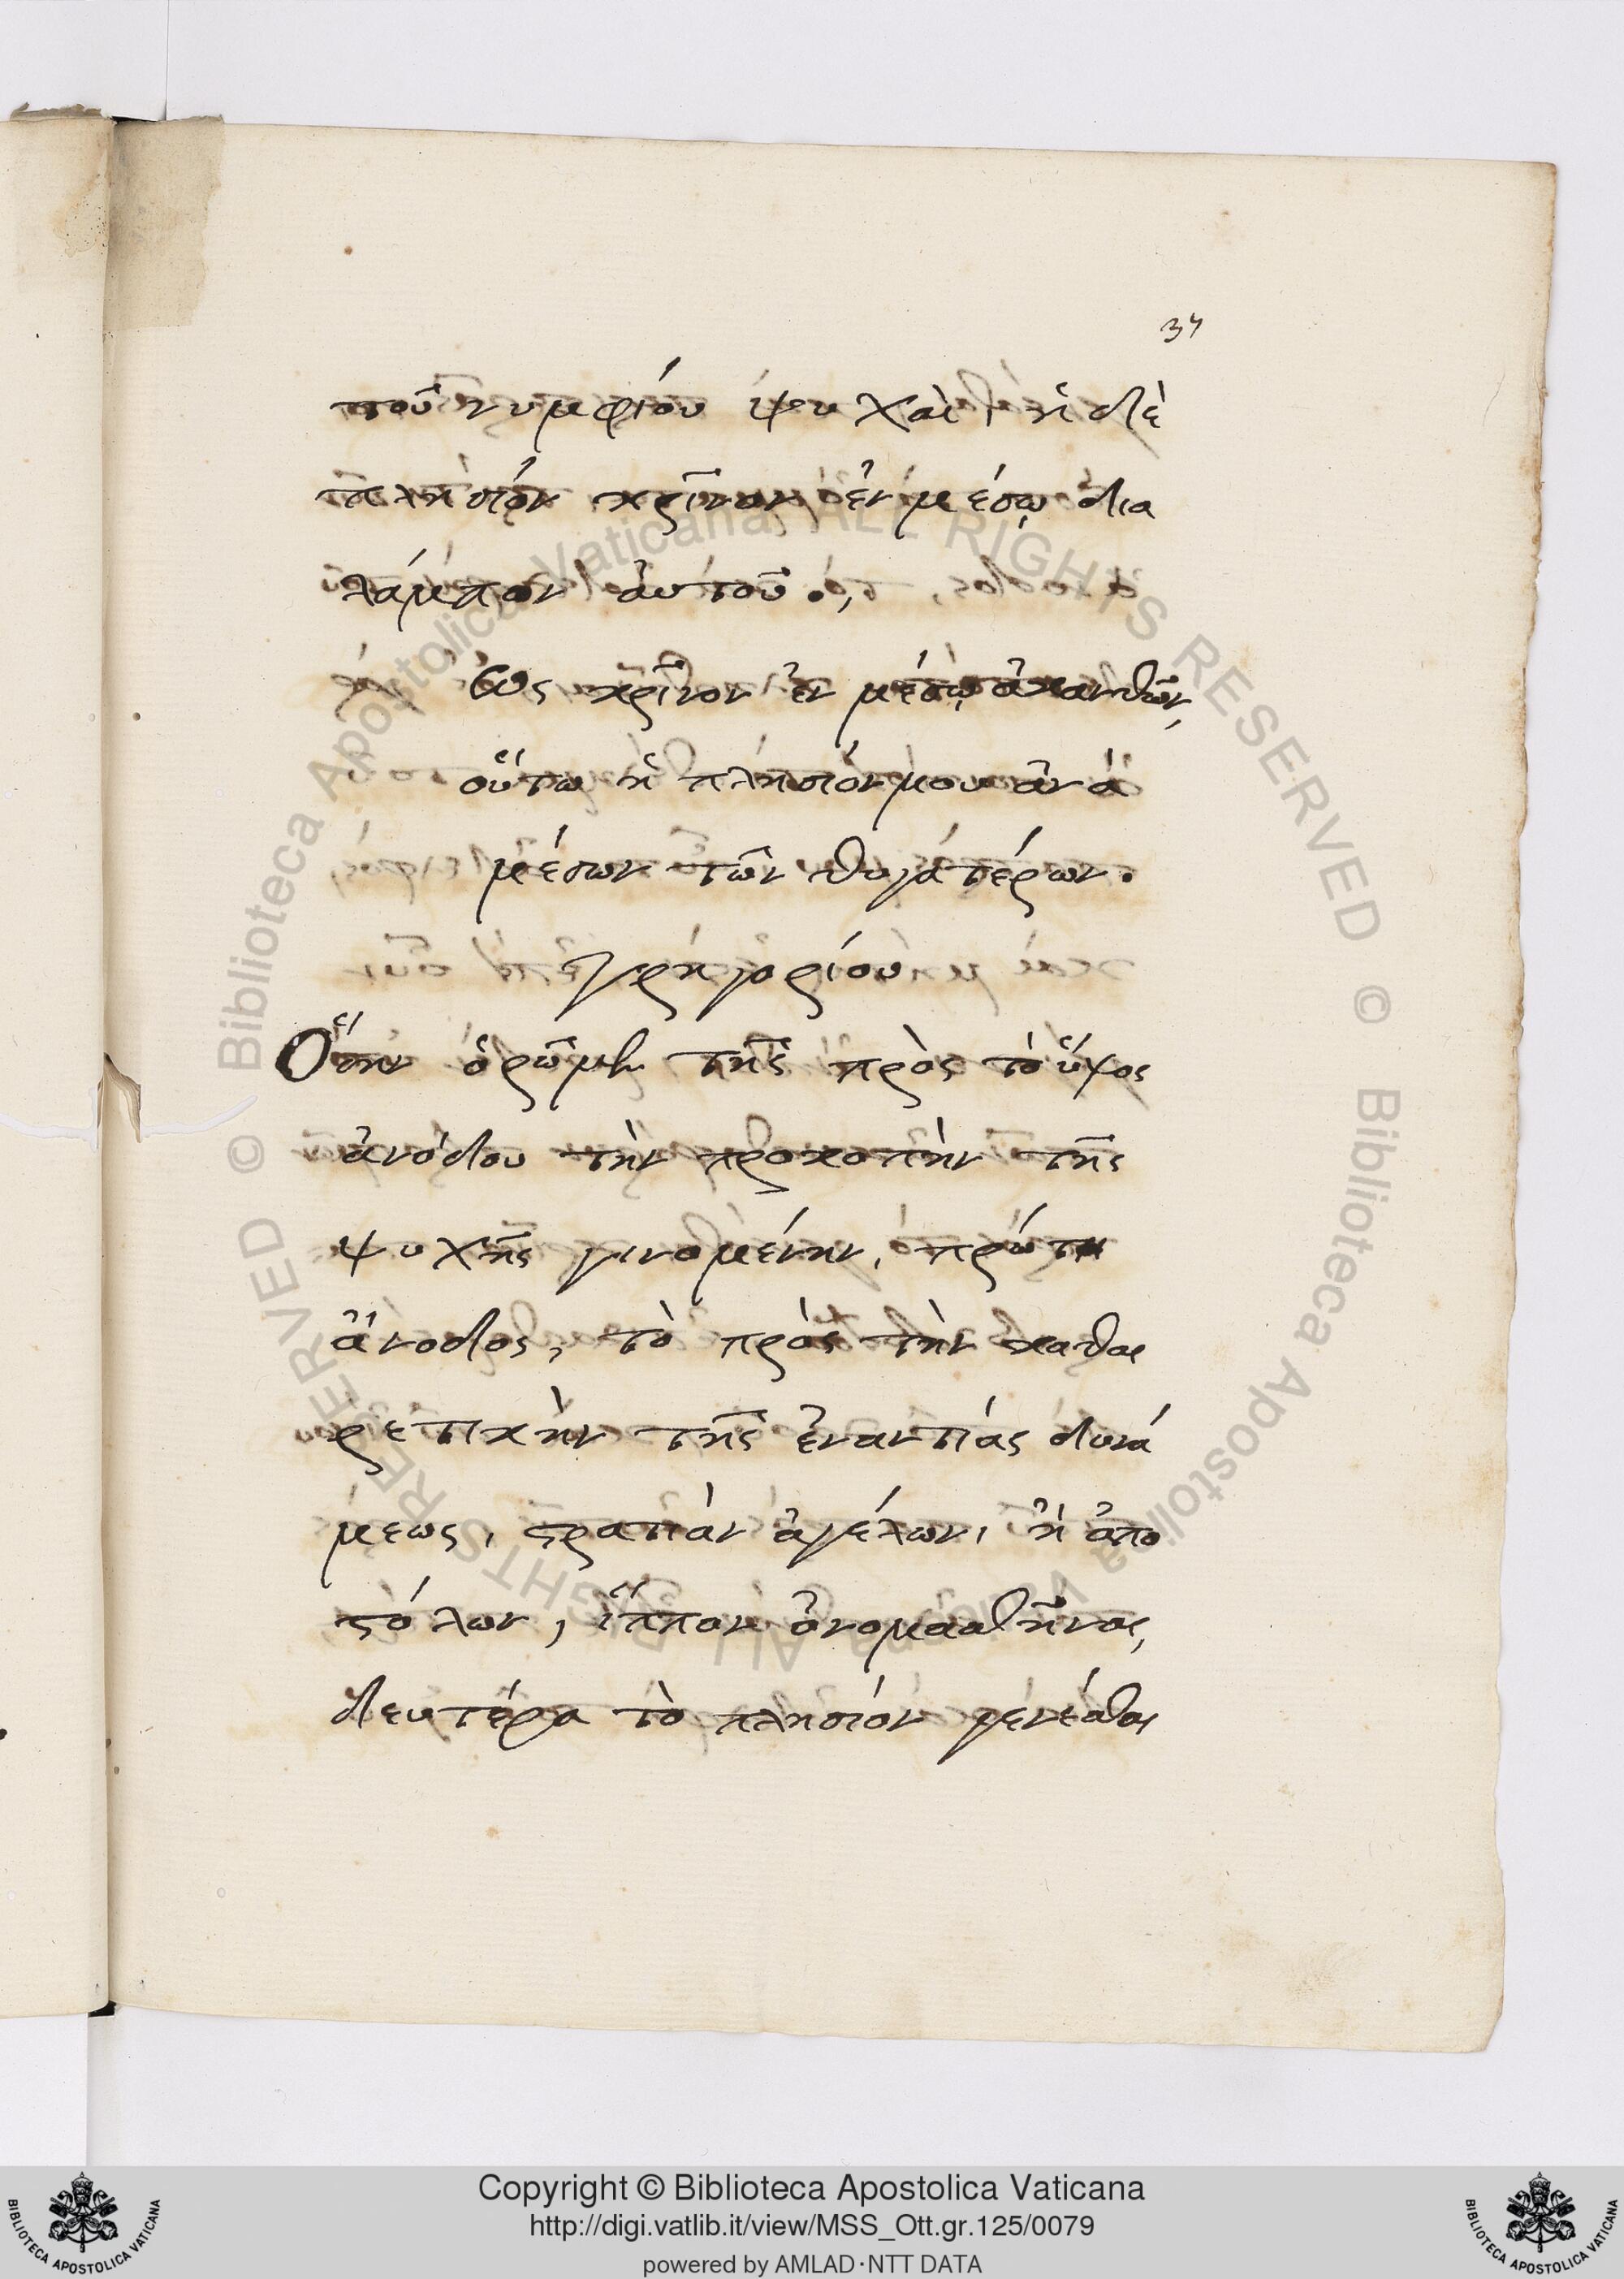 34
τοῦ νυμφίου ψυχαὶ, ἡ δὲ
πλησίον κρῖνον ἐν μέσῳ δια
λάμπον αὐτοῦ.,
Ὡς κρῖνον ἐν μέσῳ ἀκανθῶν,
οὕτω ἡ πλησίον μου ἀνὰ
μέσον τῶν θυγατέρων.
γρηγορίου
Ὅταν ὁρῶμεν τῆς πρὸς τὸ ὕψος
ἀνόδου τὴν προκοπὴν τῆς
ψυχῆς γινομένην, πρώτη
ἄνοδος, τὸ πρὸς τὴν καθαι
ρετικὴν τῆς ἐναντίας δυνά
μεως, στρατιὰν ἀγγέλων, ἢ ἀπο
στόλων, ἵππον ὀνομασθῆναι,
δευτέρα τὸ πλησίον γενέσθαι
Biblioteca Apostolica Vaticana ALL RIGHTS RESERVED ©
Biblioteca Apostolica Vaticana ALL RIGHTS RESERVED ©
Copyright © Biblioteca Apostolica Vaticana
http://digi.vatlib.it/view/MSS_Ott.gr.125/0079
powered by AMLAD·NTT DATA
BIBLIOTECA APOSTOLICA VATICANA
BIBLIOTECA APOSTOLICA VATICANA